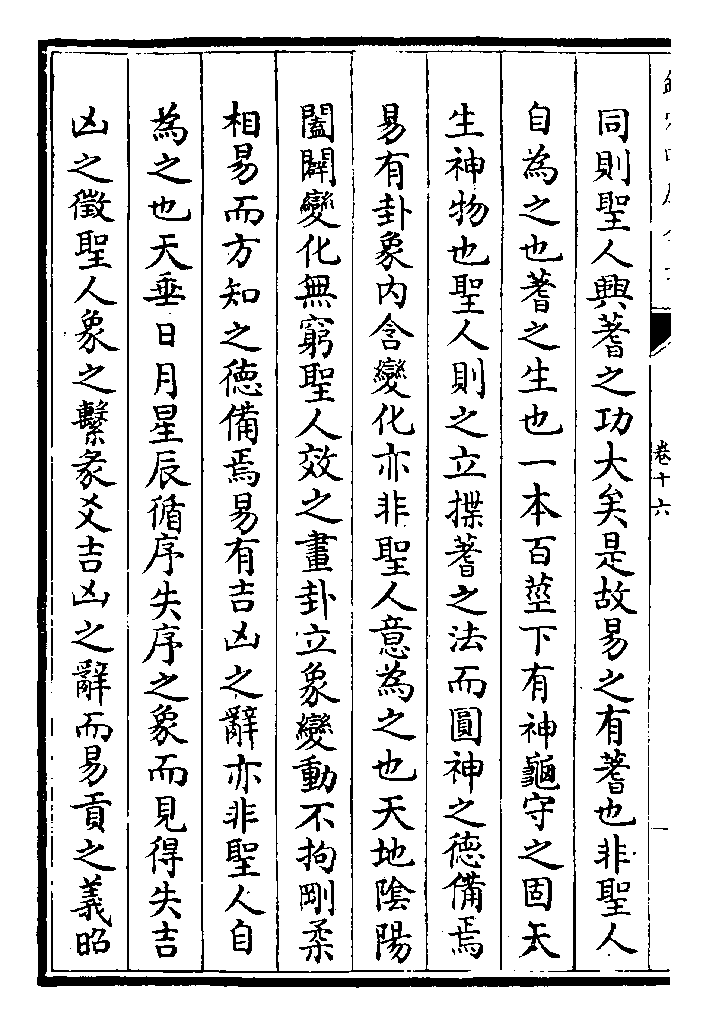 卷十六
同則聖人興蓍之功大矣是故易之有蓍也非聖人
自為之也蓍之生也一本百莖下有神龜守之固天
生神物也聖人則之立揲蓍之法而圓神之德備焉
易有卦象內含變化亦非聖人意為之也天地陰陽
闔闢變化無窮聖人效之畫卦立象變動不拘剛柔
相易而方知之德備焉易有吉凶之辭亦非聖人自
為之也天垂日月星辰循序失序之象而見得失吉
凶之徵聖人象之繫彖爻吉凶之辭而易貢之義昭